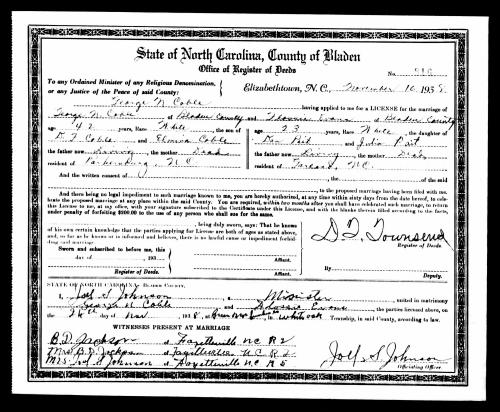 State of North Carolina, County of Bladen
Office of Register of Deeds
No.
To any Ordained Minister of any Religious Denomination, or any Justice of the Peace of said County:
Elizabethtown, N. C., November 16, 193
George N Coble having applied to me for a LICENSE for the marriage of
George N Coble of Bladen County and Thomasia Evans of Bladen County
age 42 years, Race White, the son of age 23 years, Race White, the daughter of
Coble and Coble Dan Pait and Julia Pait
the father now Living, the mother Dead the father now Living, the mother Dead
resident of Parkersburg N.C. resident of N.C.
And the written consent of of the said
to the proposed marriage having been filed with me.
And there being no legal impediment to such marriage known to me, you are hereby authorized, at any time within sixty days from the date hereof, to celebrate the proposed marriage at any place within the said County. You are required, within two months after you shall have celebrated such marriage, to return
this License to me, at my office, with your signature subscribed to the Certificate under this License, and with the blanks therein filled according to the facts,
under penalty of forfeiting $200.00 to the use of any person who shall sue for the same.
being duly sworn, says: That he knows
of his own certain knowledge that the parties applying for License are both of ages as stated above,
and, so far as he knows or is informed and believes, there is no lawful cause or impediment forbidding said marriage
D. F. Townsend
Register of Deeds.
Sworn and subscribed to before me, this
day of 193
Affiant.
Affiant.
Register of Deeds.
By
Deputy.
STATE OF NORTH CAROLINA—BLADEN COUNTY.
I, Joel S Johnson, a Minister, united in matrimony
George N Coble and Evans, the parties licensed above, on
the 26th day of Nov 1938, at in Whiteoak Township, in said County, according to law.
WITNESSES PRESENT AT MARRIAGE
B. D. Jackson of Fayetteville N C R 2
Mrs B. D. Jackson of Fayetteville N. C. R 2
Mrs. Joel S Johnson of Fayetteville N C R 5
Joel S. Johnson
Officiating Officer